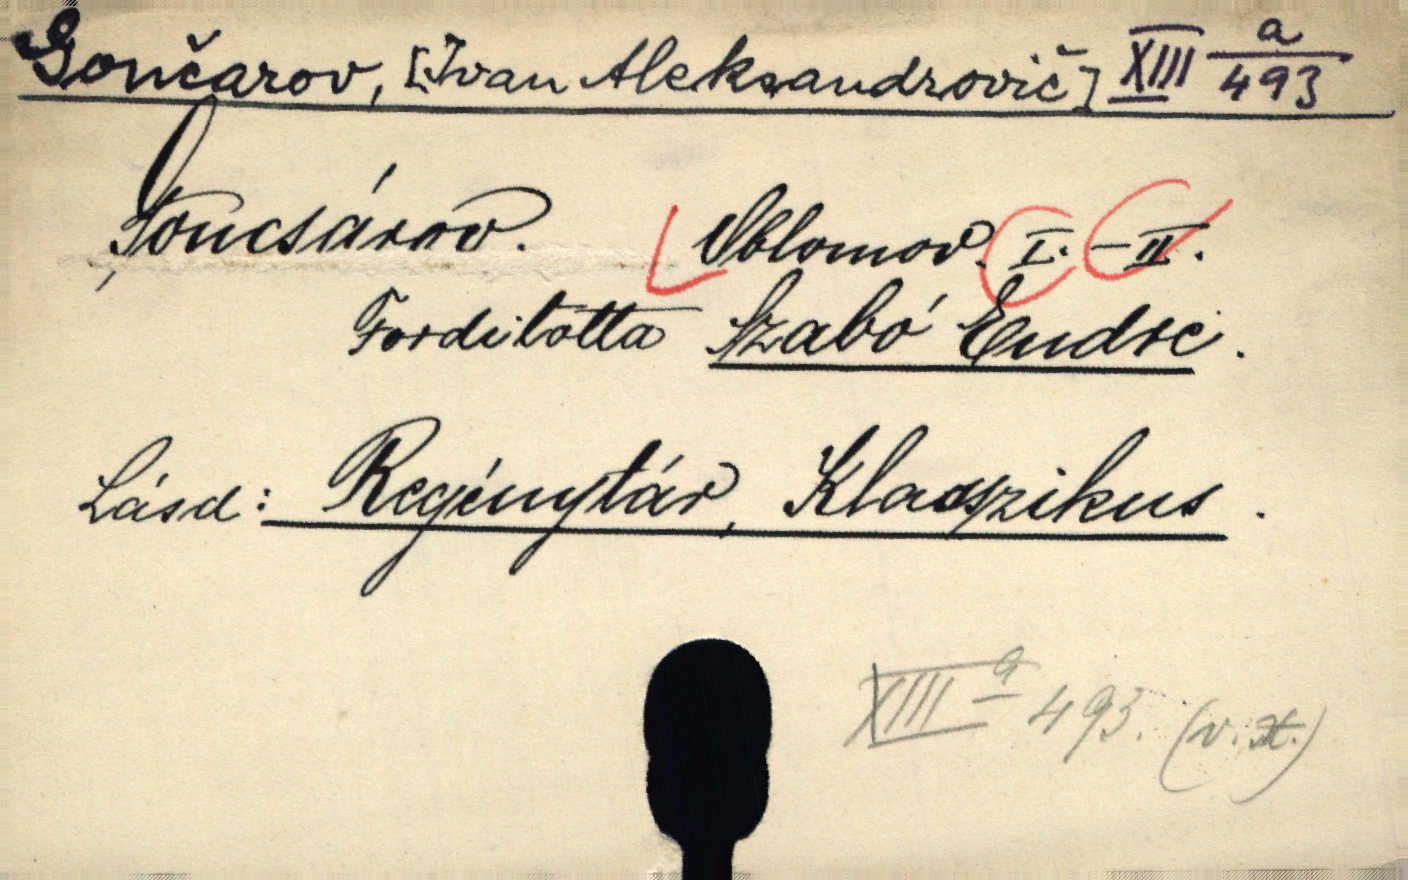 Gončarov, [Ivan Aleksandrovič] XIII a/493
Goncsárow. Oblomov. I. – II.
Fordította Szabó Endre.
Lásd: Regénytár, Klasszikus.
XIII a 493. (v. st.)